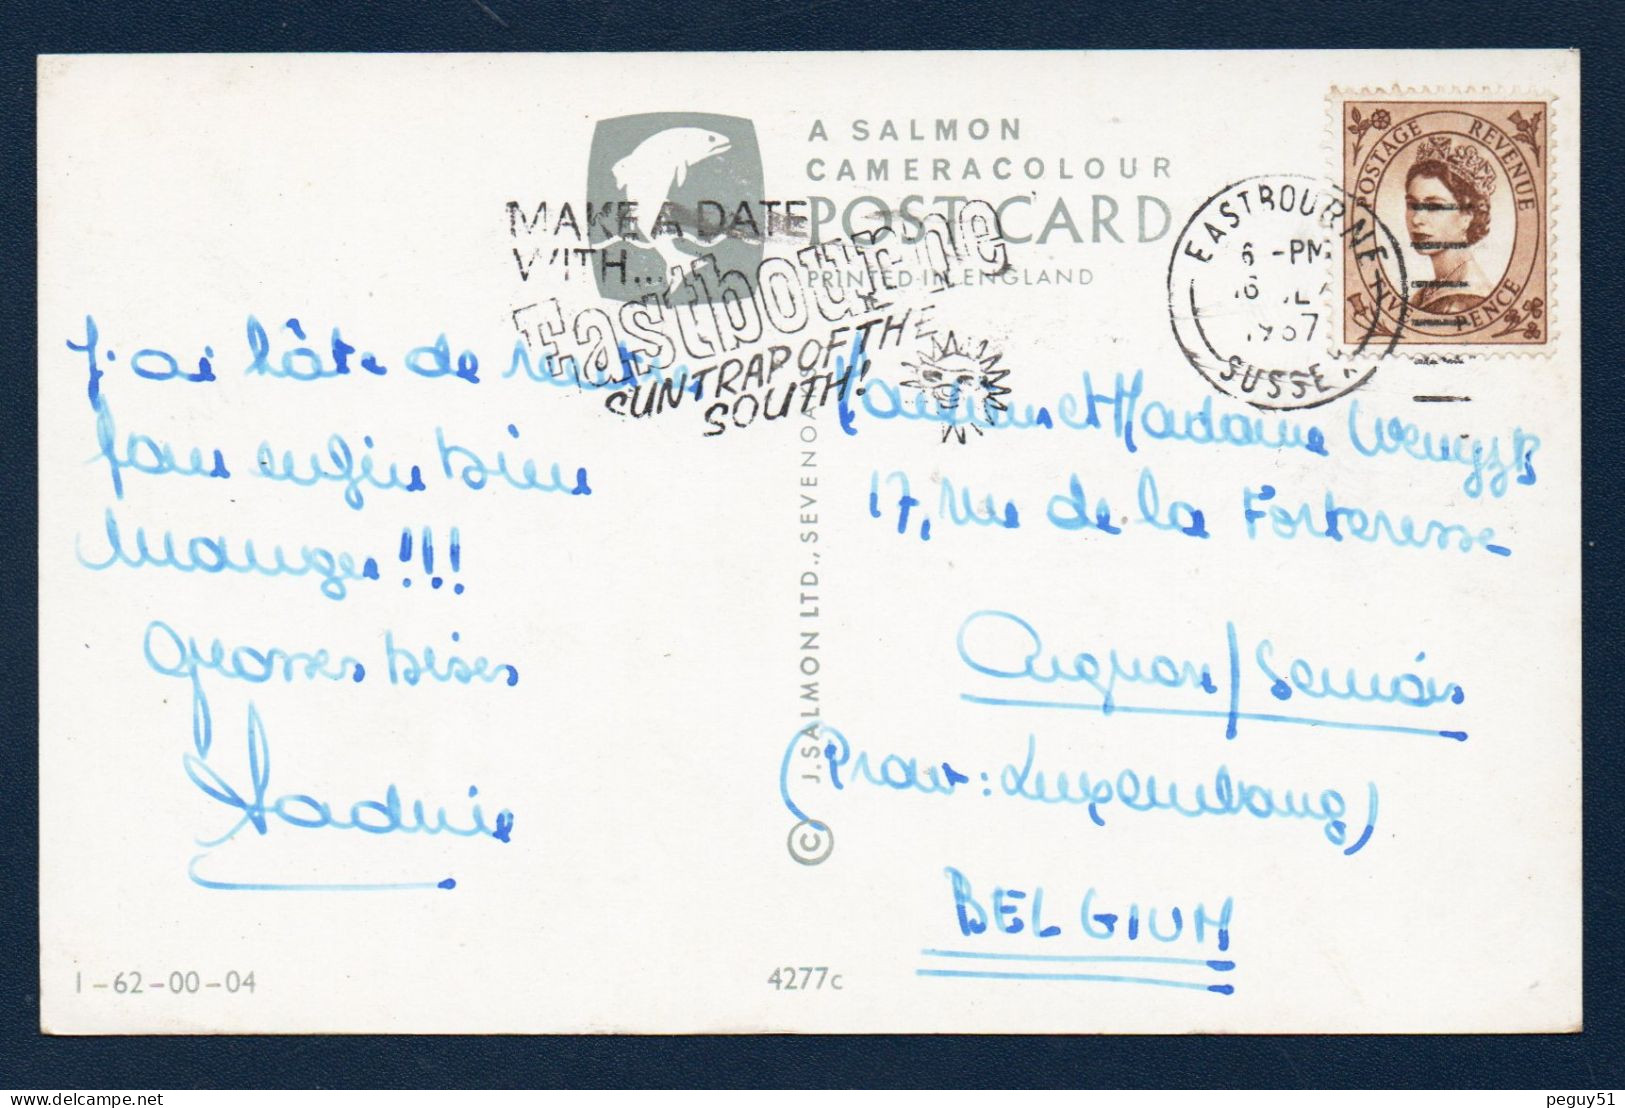 A SALMON
CAMERACOLOUR
POST CARD
PRINTED IN ENGLAND
MAKE A DATE
WITH...
Eastbourne
SUNTRAP OF THE
SOUTH!
EASTBOURNE
6 -PM
16
1967
SUSSEX
POSTAGE REVENUE
FIVE PENCE
J'ai hâte de
pour enfin bien
manger!!!
Grosses bises
Monsieur et Madame
17, rue de la Forteresse
/Semois
(Prov: Luxembourg)
BELGIUM
© J. SALMON LTD., SEVENOAKS
I-62-00-04
4277c
peguy51